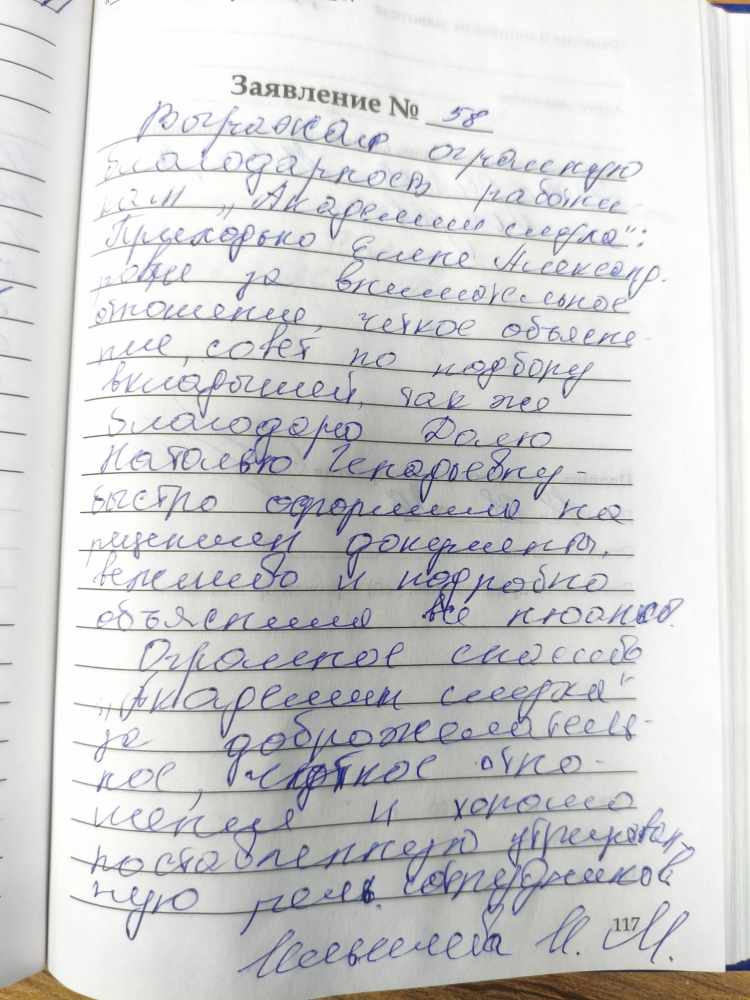 Заявление № 58
Выражаю огромную
благодарность работни-
кам „Академии слуха“:
Приходько Елене Александ-
ровне за внимательное
отношение, четкое объясне-
ние, совет по подбору
вкладышей, так же
благодарю Долю
Наталью Генадьевну -
быстро оформила на
документы,
вежливо и подробно
объяснила все нюансы.
Огромное спасибо
„Академии слуха“
за доброжелатель-
ное, чуткое отно-
шение и хорошо
поставленную утрирован-
ную речь сотрудников
И. М.
117